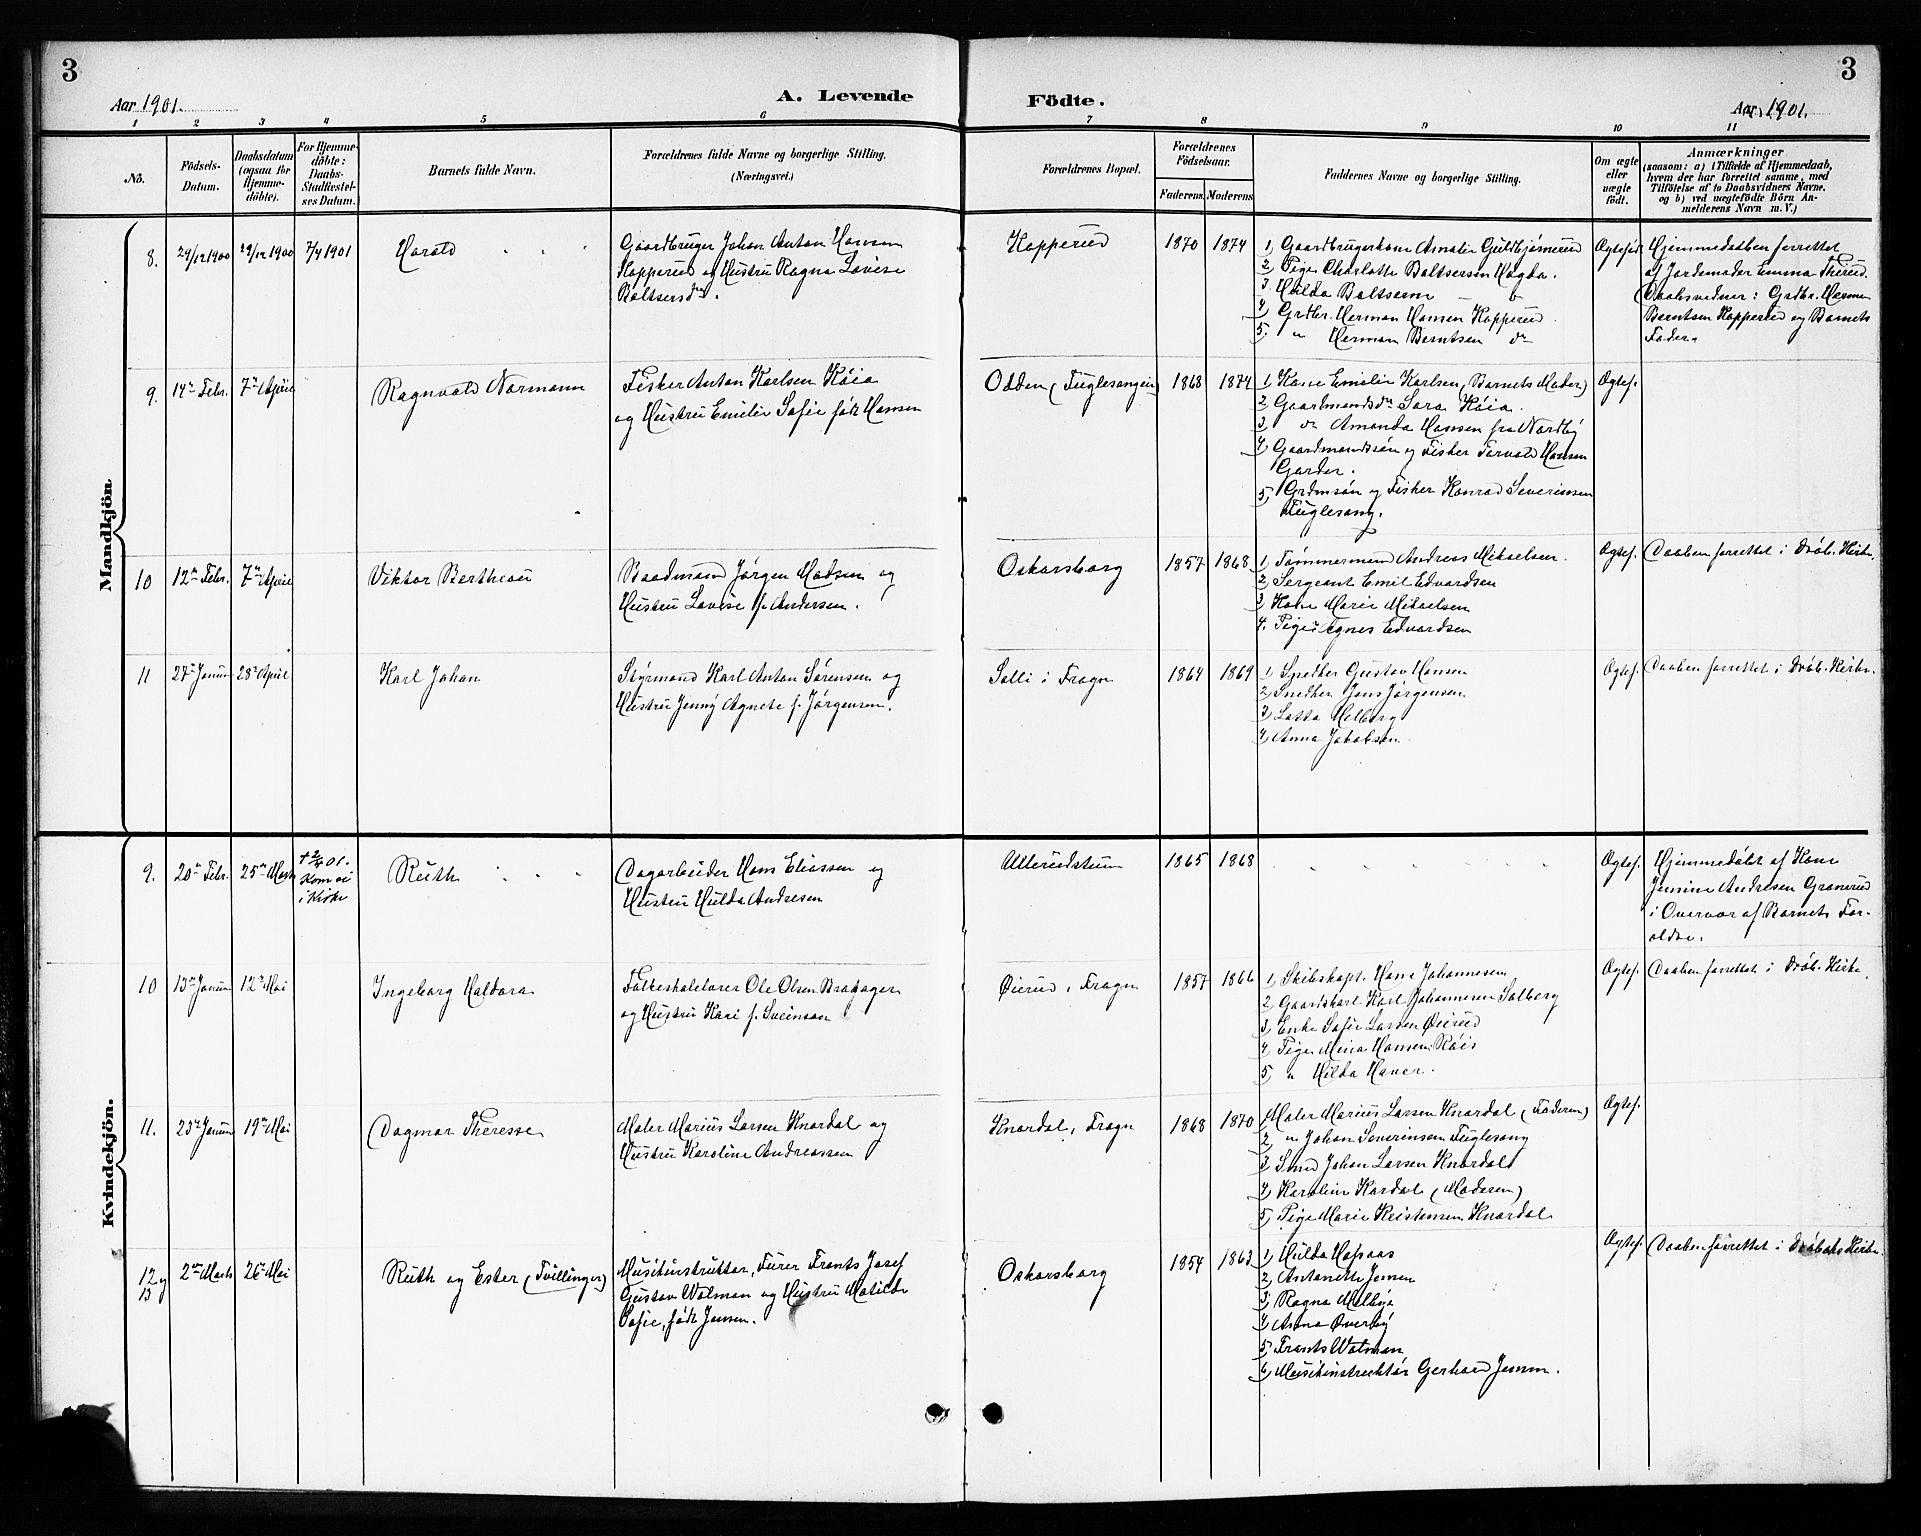 3
3
Aar 1901.
A. Levende
Födte.
Aar 1901.
1 2 3 4 5 6 7 8 9 10 11
No.
Födsels-
Datum.
Daabsdatum
(ogsaa for
Hjemme-
döbte).
For Hjemme-
döbte:
Daabs-
Stadfæstel-
ses Datum.
Barnets fulde Navn.
Forældrenes fulde Navne og borgerlige Stilling.
(Næringsvei.)
Forældrenes Bopæl.
Forældrenes
Födselsaar.
Faderens
Moderens
Faddernes Navne og borgerlige Stilling.
Om ægte
eller
uægte
födt.
Anmærkninger
(saasom: a) i Tilfælde af Hjemmedaab,
hvem der har forrettet samme, med
Tilföielse af to Daabsvidners Navne,
og b) ved uægtefödte Börn An-
melderens Navn m. V.)
Mandkjön.
8. 29/12 1900 29/12 1900 7/4 1901
Harald
Gaardbruger Johan Anton Hansen
Kopperud og Hustru Ragna Lovise
Baltsersdr.
Kopperud
1870 1874
1, Gaardbrugerkone Amalie Guldbjørnerud
2, Pige Charlotte Baltsersen Hagda.
3, Hilda Baltsersen
4, Grdbr. Herman Hansen Kopperud.
5, " Herman Berntsen do
Ægtefød.
Hjemmedaaben forrettet
af Jordemoder Emma Therud.
Daabsvidner: Grdbr. Herman
Berntsen Kopperud og Barnets
Fader.
9. 14de Febr. 7de April
Ragnvald Normann
Fisker Anton Karlsen Røia
og Hustru Emilie Sofie født Hansen
Odden (Fuglesangen)
1868 1874
1, Kone Emilie Karlsen, (Barnets Moder)
2, Gaardmandsdr Sara Røia.
3, do Amanda Hansen fra Nordby
4, Gaardmandssøn og Fisker Torvald Hansen
Garder.
5, Grdmsøn og Fisker Konrad Severinsen
Fuglesang.
Ægtef.
10 12te Febr. 7de April
Viktor Bertheau
Baadmand Jørgen Madsen og
Hustru Lovise f. Andersen.
Oskarsborg
1857 1868
1, Tømmermand Andreas Mikaelsen.
2, Sergeant Emil Edvardsen
3, Kone Marie Mikaelsen
4. Pige Agnes Edvardsen
Ægtef.
Daaben forrettet i Drøb. Kirke.
11 27de Januar 28de April
Karl Johan
Styrmand Karl Anton Sørensen og
Hustru Jenny Agnete f. Jørgensen.
Solli i Frogn
1864 1869
1, Snedker Gustav Hansen
2, Snedker Jens Jørgensen
3, Lotta Helberg
4, Anna Jakobsen.
Ægtef.
Daaben forrettet i Drøb. Kirke.
Kvindekjön.
9. 20de Febr. 25de Marts
+ 2/4 01.
Kom ei
i Kirke
Ruth
Dagarbeider Hans Eliassen og
Hustru Hulda Andresen
Ullerudstuen
1865 1868
Ægtef.
Hjemmedøbt af Kone
Jensine Andresen Granerud
i Overvær af Barnets For-
ældre.
10 13de Januar 12te Mai
Ingeborg Haldora
Folkeskolelærer Ole Olsen Bragager
og Hustru Kari f. Sveinson
Øierud i Frogn
1857 1866
1, Skibskapt. Hans Johannesen
2, Gaardskarl Karl Johannesen Solberg
3, Enke Sofie Larsen Øierud
4, Pige Mina Hansen Røis
5, " Hilda Haver.
Ægtef.
Daaben forrettet i Drøb. Kirke.
11. 23de Januar 19de Mai
Dagmar Therese
Maler Marius Larsen Knardal og
Hustru Karoline Andreassen
Knardal, Frogn
1868 1870
1, Maler Marius Larsen Knardal (Faderen)
2, " Johan Severinsen Fuglesang
3, Smed Johan Larsen Knardal
4, Karoline Kardal (Moderen)
5, Pige Marie Kristiansen Knardal
Ægtef.
12 og
13
2den Marts 26de Mai
Ruth og Ester (Tvillinger)
Musikinstruktør, Furer Frants Josef
Gustav Walman og Hustru Matilde
Sofie, født Jensen.
Oskarsborg
1854 1863
1, Hulda Hafsaas
2, Antonette Jensen
3, Ragna Melbye
4, Anna Øverby
5, Frants Walman
6, Musikinstruktør Gerhard Jensen.
Ægtef.
Daaben forrettet i Drøbaks Kirke